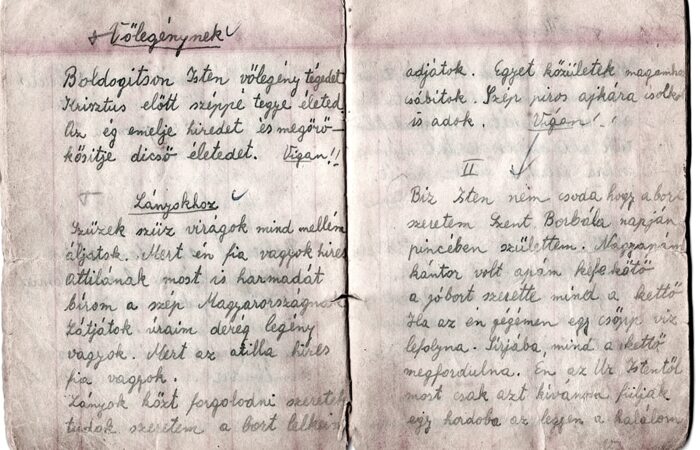 Vőlegénynek
Boldogitson Isten vőlegény tégedet
Krisztus előtt széppé tegye életed
Az ég emelje hiredet és megörö-
kősitje dicső életedet. Vigan!!
Lányokhoz
Szüzek szüz virágok mind mellém
áljatok. Mert én fia vagyok hires
Attilának most is harmadát
birom a szép Magyarországnak
Látjátok úraim derég legény
vagyok. Mert az atilla hires
fia vagyok.
Lányok közt forgolodni szeretek
tudok szeretem a bort lelkem
adjátok. Egyet közületek magamhoz
csábitok. Szép piros ajkára csolkot
is adok. Vigan!
II
Biz Isten nem csoda hogy a bort
szeretem Szent Borbála napján
pincében születtem. Nagyapám
kántor volt apám kefakötő
a jóbort szerette mind a kettő
Ha az én gégémen egy csöpp viz
lefolyna. Sirjába, mind a kettő
megfordulna. Én az Úr Istentől
most csak azt kivánom fuljak
egy hordoba az legyen a halálom